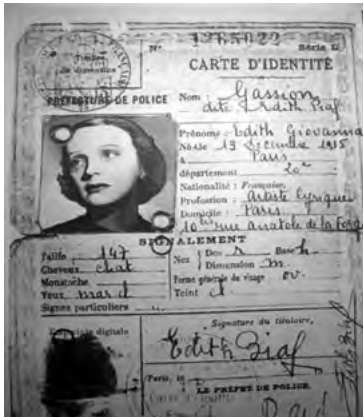 Nº 1265022
Série L
Timbre
de dimension
CARTE D'IDENTITÉ
PRÉFECTURE DE POLICE
Nom : Gassion
dite Edith Piaf
Prénoms : Edith Giovanna
Né le 19 Décembre 1915
à Paris
département 20e
Nationalité : Française
Profession : Artiste Lyrique
Domicile : Paris
10 bis rue Anatole de la Forge
SIGNALEMENT
Taille 147
Cheveux chat
Moustache
Yeux mar cl
Signes particuliers
Nez Dos r Base h
Dimension m
Forme générale du visage ov.
Teint cl
digitale
Signature du titulaire,
Edith Piaf
Paris, le
LE PRÉFET DE POLICE.